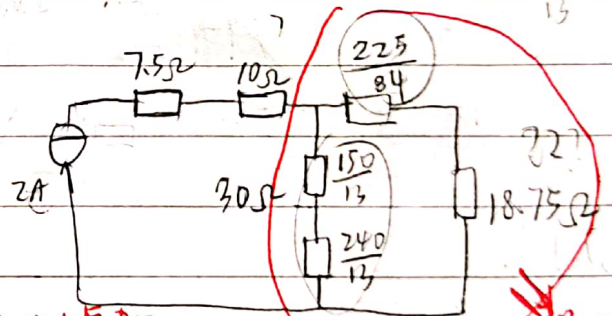 13
7.5Ω
10Ω
225
84
2A
30Ω
150
13
240
13
22?
18.75Ω